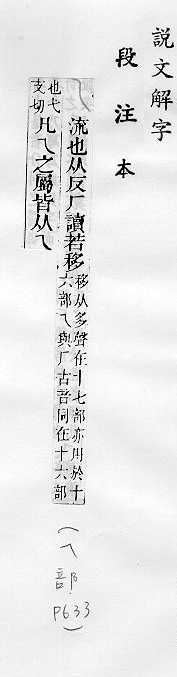 說文解字
段注本
流也从反厂讀若移
移从多聲在十七部亦用於十
六部乁與厂古音同在十六部
也弋
支切
凡乁之屬皆从乁
(乁部 P633)